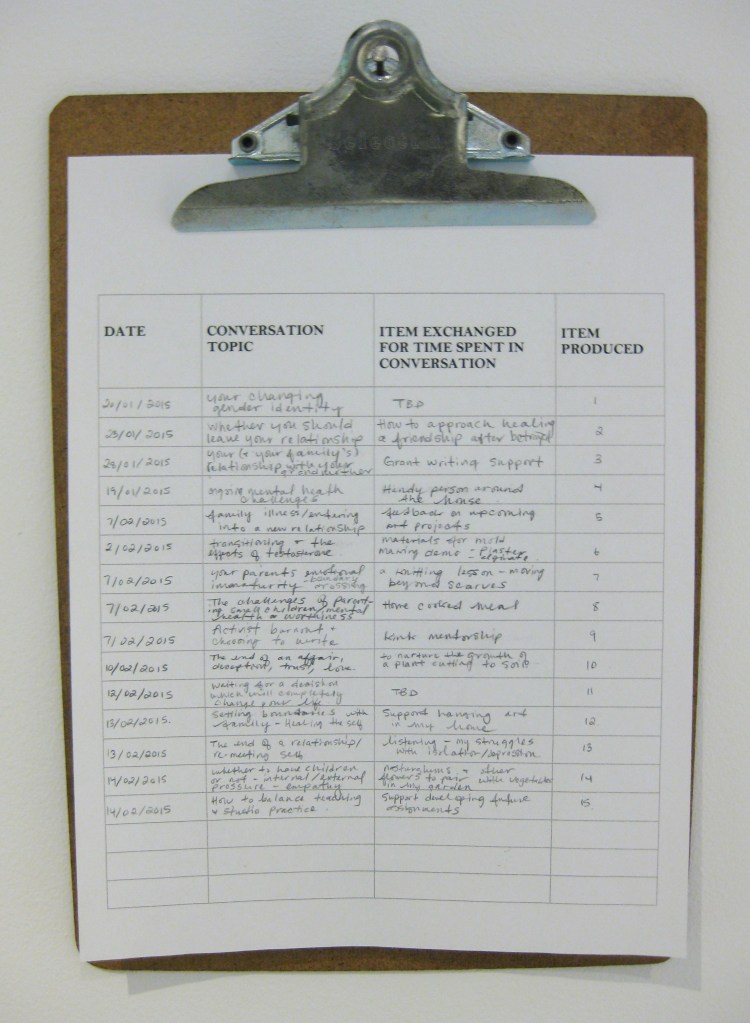 DATE
CONVERSATION
TOPIC
ITEM EXCHANGED
FOR TIME SPENT IN
CONVERSATION
ITEM
PRODUCED
20/01/2015
your changing
gender identity
TBD
1
23/01/2015
whether you should
leave your relationship
How to approach healing
a friendship after betrayal
2
28/01/2015
your (+ your family's)
relationship with your
grandmother
Grant writing support
3
19/01/2015
ongoing mental heath
challenges
Handy person around
the house
4
7/02/2015
family illness/entering
into a new relationship
feedback on upcoming
art projects
5
2/02/2015
transitioning + the
effects of testosterone
materials for mold
making demo - plaster
alginate
6
7/02/2015
your parents emotional
immaturity - boundary
crossing
a knitting lesson - moving
beyond scarves
7
7/02/2015
The challenges of parent-
ing small children/mental
health + worthiness
Home cooked meal
8
7/02/2015
Activist burnout +
choosing to write
kink mentorship
9
10/02/2015
The end of an affair,
deception, trust, love.
to nurture the growth of
a plant cutting to soil
10
12/02/2015
waiting for a decision
which will completely
change your life
TBD
11
13/02/2015.
Setting boundaries with
family - Healing the self
Support hanging art
in my home
12
13/02/2015
The end of a relationship/
re-meeting self
listening - my struggles
with isolation/depression
13
14/02/2015
whether to have children
or not - internal/external
pressure - empathy
nasturtiums + other
flowers to pair with vegetables
in my garden
14
14/02/2015
How to balance teaching
+ studio practice.
Support developing future
assignments
15